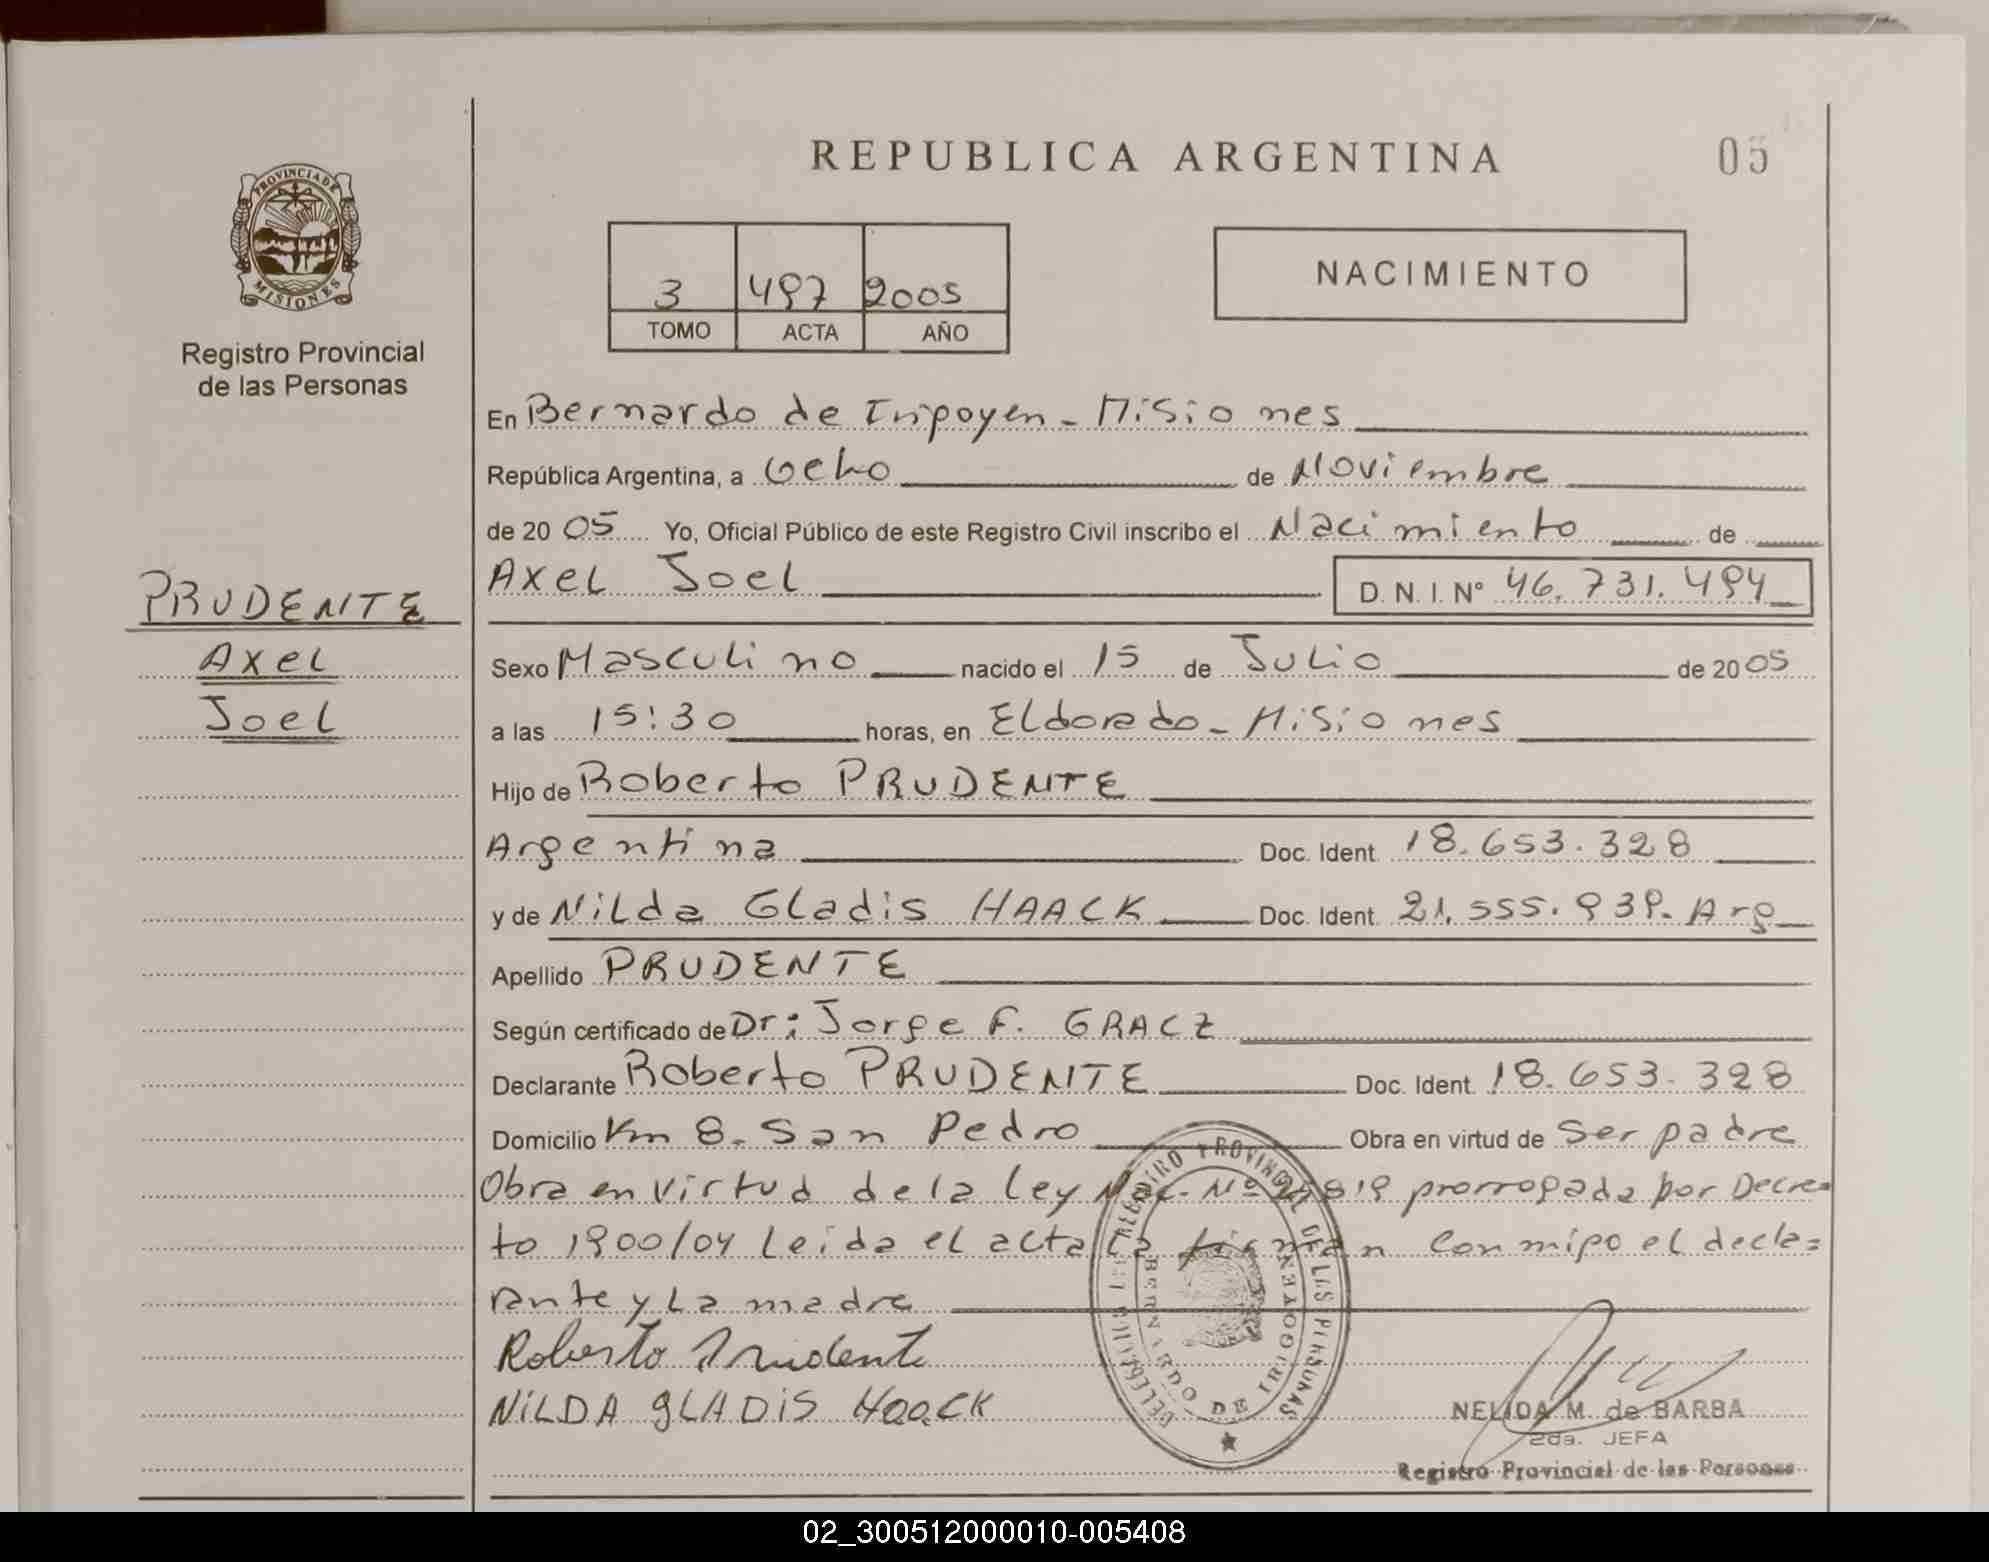 REPUBLICA ARGENTINA
05
PROVINCIA DE MISIONES
Registro Provincial
de las Personas
3 497 2005
TOMO ACTA AÑO
NACIMIENTO
En Bernardo de Iripoyen - Misiones
República Argentina, a Ocho de Noviembre
de 20 05 Yo, Oficial Público de este Registro Civil inscribo el Nacimiento de
Axel Joel D. N. I. Nº 46.731.494
PRUDENTE
Axel
Joel
Sexo Masculino nacido el 15 de Julio de 20 05
a las 15:30 horas, en Eldorado - Misiones
Hijo de Roberto PRUDENTE
Argentina Doc. Ident. 18.653.328
y de Nilda Gladis HAACK Doc. Ident. 21.555.939. Arg
Apellido PRUDENTE
Según certificado de Dr: Jorge F. GRACZ
Declarante Roberto PRUDENTE Doc. Ident. 18.653.328
Domicilio Km 8. San Pedro Obra en virtud de Ser padre
Obra en virtud de la Ley Nac. Nº 25819 prorrogada por Decre=
to 1900/04 Leida el acta la firman conmigo el decla=
rante y La madre
Roberto Prudente
NILDA GLADIS HAACK
REGISTRO PROVINCIAL DE LAS PERSONAS
BERNARDO DE IRIGOYEN
NELIDA M. de BARBA
2da. JEFA
Registro Provincial de las Personas
02_300512000010-005408